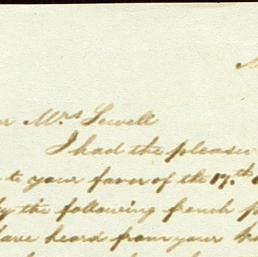 Mrs Sewell
I had the pleasure
to your favor of the 17th
the following french
have heard from your